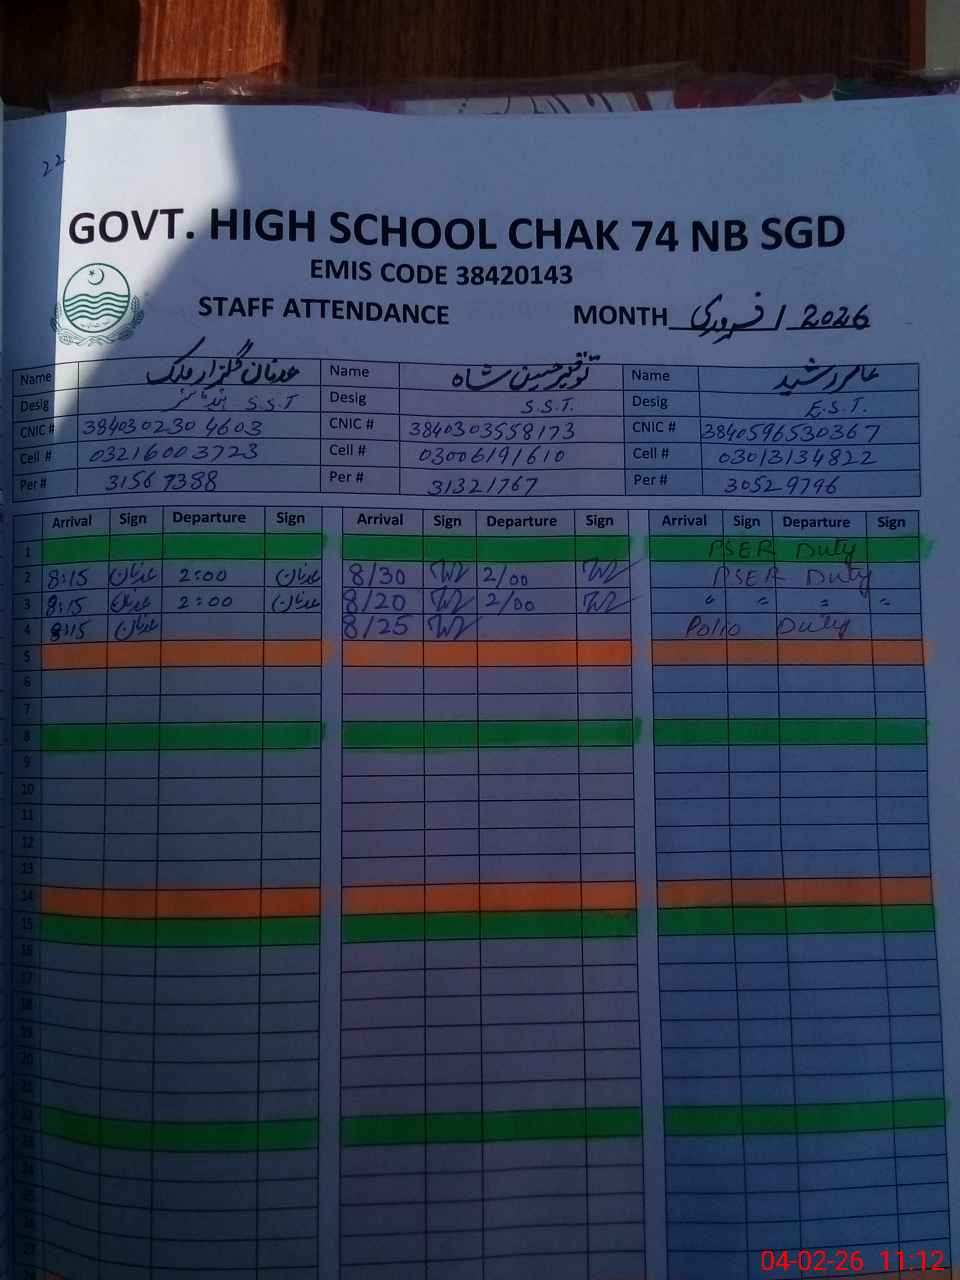 22
GOVT. HIGH SCHOOL CHAK 74 NB SGD
EMIS CODE 38420143
STAFF ATTENDANCE MONTH فروری / 2026
Name عدنان گلزار ملک Name توقیر حسین شاہ Name عامر رشید
Desig S.S.T Desig S.S.T. Desig E.S.T.
CNIC # 3840302304603 CNIC # 3840303558173 CNIC # 3840596530367
Cell # 03216003723 Cell # 03006191610 Cell # 03013134822
Per # 31567388 Per # 31321767 Per # 30529796
Arrival Sign Departure Sign Arrival Sign Departure Sign Arrival Sign Departure Sign
1 PSER Duty
2 8:15 عدنان 2:00 عدنان 8/30 2/00 PSER Duty
3 8:15 عدنان 2:00 عدنان 8/20 2/00 " " " "
4 8:15 عدنان 8/25 Polio Duty
5
6
7
8
9
10
11
12
13
14
15
16
17
18
19
20
21
22
23
24
25
26
27
04-02-26 11:12